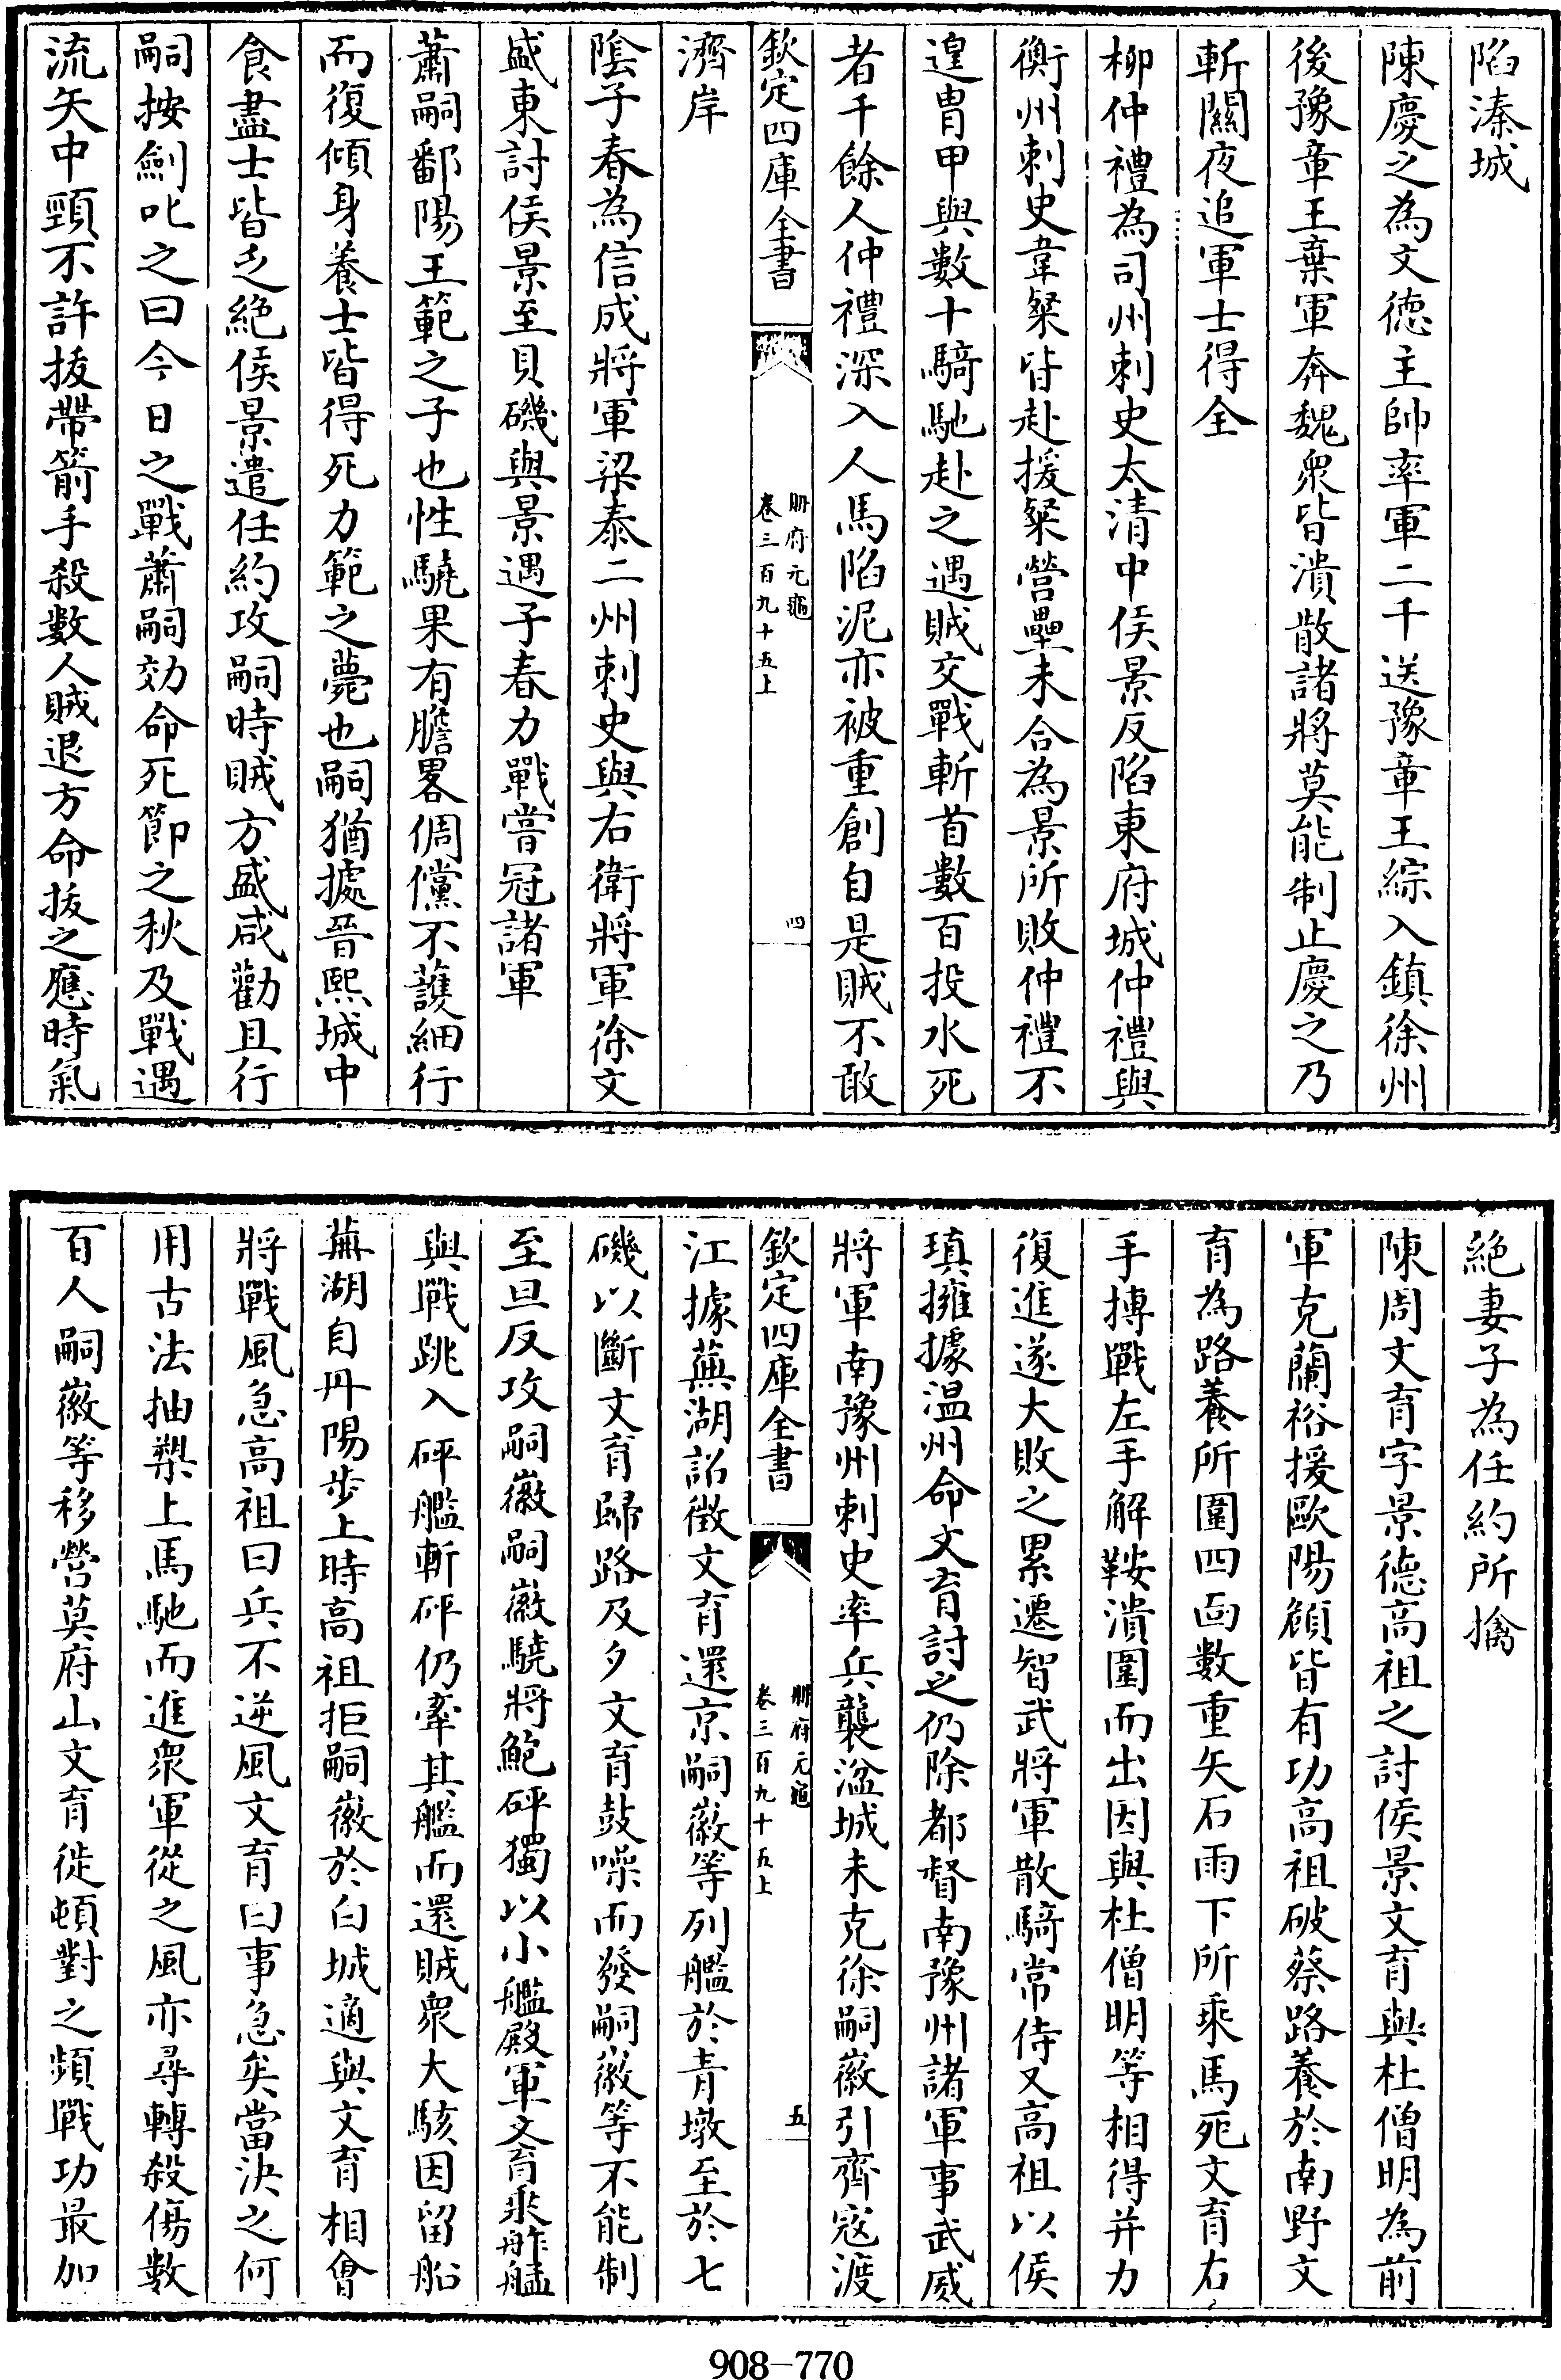 陷溱城
陳慶之為文徳主帥率軍二千送豫章王綜入鎮徐州
後豫章王棄軍奔魏衆皆潰散諸將莫能制止慶之乃
斬關夜追軍士得全
柳仲禮為司州刺史太清中侯景反陷東府城仲禮與
衡州刺史韋粲皆赴援粲營壘未合為景所敗仲禮不
遑胄甲與數十騎馳赴之遇賊交戰斬首數百投水死
者千餘人仲禮深入人馬陷泥亦被重創自是賊不敢
欽定四庫全書
冊府元龜
卷三百九十五上
四
濟岸
陰子春為信成將軍梁泰二州刺史與右衛將軍徐文
盛東討侯景至貝磯與景遇子春力戰嘗冠諸軍
蕭嗣鄱陽王範之子也性驍果有膽畧倜儻不䕶細行
而復傾身養士皆得死力範之薨也嗣猶據晉熙城中
食盡士皆乏絶侯景遣任約攻嗣時賊方盛咸勸且行
嗣按劍叱之曰今日之戰蕭嗣効命死節之秋及戰遇
流矢中頸不許拔帶箭手殺數人賊退方命拔之應時氣
絶妻子為任約所擒
陳周文育字景德高祖之討侯景文育與杜僧明為前
軍克蘭裕援歐陽頠皆有功高祖破蔡路養於南野文
育為路養所圍四面數重矢石雨下所乘馬死文育右
手搏戰左手解鞍潰圍而出因與杜僧明等相得并力
復進遂大敗之累遷智武將軍散騎常侍又高祖以侯
瑱擁據温州命文育討之仍除都督南豫州諸軍事武威
將軍南豫州刺史率兵襲湓城未克徐嗣徽引齊寇渡
欽定四庫全書
冊府元龜
卷三百九十五上
五
江據蕪湖詔徵文育還京嗣徽等列艦於青墩至於七
磯以斷文育歸路及夕文育鼓噪而發嗣徽等不能制
至旦反攻嗣徽嗣徽驍將鮑砰獨以小艦殿軍文育乘舴艋
與戰跳入砰艦斬砰仍牽其艦而還賊衆大駭因留船
蕪湖自丹陽步上時高祖拒嗣徽於白城適與文育相會
將戰風急高祖曰兵不逆風文育曰事急矣當決之何
用古法抽槊上馬馳而進衆軍從之風亦尋轉殺傷數
百人嗣徽等移營莫府山文育徙頓對之頻戰功最加
908-770